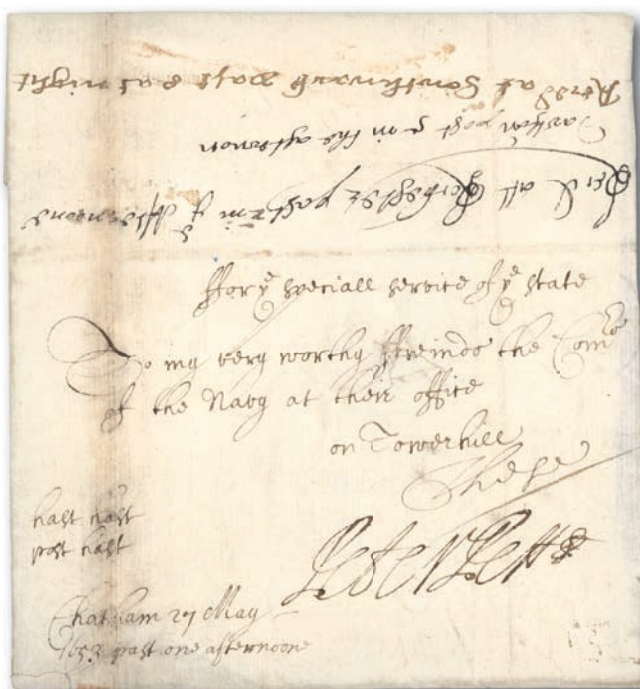 Recd att Rochester past 2 in ye Afternoone
past 5 in the afternoon
Recd at Southwark past 8 at night
ffor ye speciall service of ye State
To my very worthy ffreinds the Comrs
of the Navy at their office
on Towerhill
These
Peter Pett
hast hast
post hast
Chatham 27 May
1653 past one afternoone